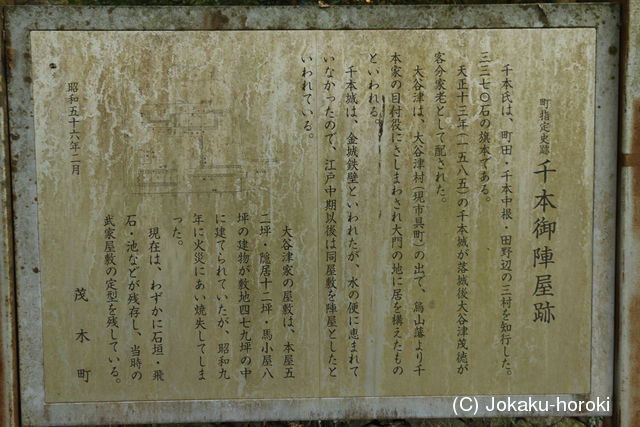 町指定史跡 千本御陣屋跡
千本氏は、町田・千本中根・田野辺の三村を知行した。
三三七〇石の旗本である。
天正十三年(一五八五)の千本城が落城後大谷津茂徳が
客分家老として配された。
大谷津は、大谷津村(現市貝町)の出で、烏山藩より千
本家の目付役にさしまわされ大門の地に居を構えたもの
といわれる。
千本城は、金城鉄壁といわれたが、水の便に恵まれて
いなかったので、江戸中期以後は同屋敷を陣屋としたと
いわれている。
大谷津家の屋敷は、本屋五
二坪・隠居十二坪・馬小屋八
坪の建物が敷地四七九坪の中
に建てられていたが、昭和九
年に火災にあい焼失してしま
った。
現在は、わずかに石垣・飛
石・池などが残存し、当時の
武家屋敷の定型を残している。
昭和五十六年二月
茂木町
(C) Jokaku-horoki